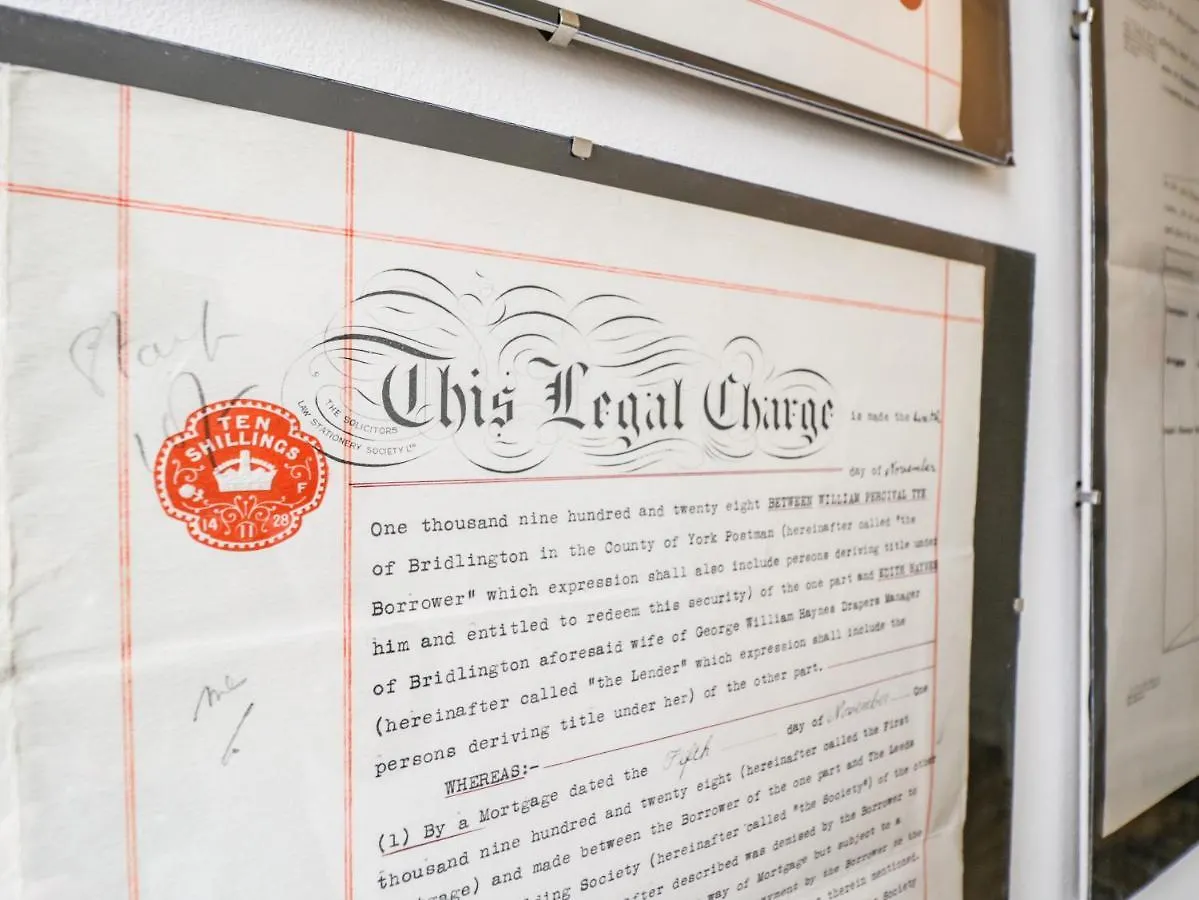 TEN
SHILLINGS
F
14 28
11
THE SOLICITORS
LAW STATIONERY SOCIETY LTD
This Legal Charge is made the
day of November
One thousand nine hundred and twenty eight BETWEEN WILLIAM PERCIVAL TYE
of Bridlington in the County of York Postman (hereinafter called "the
Borrower" which expression shall also include persons deriving title under
him and entitled to redeem this security) of the one part and EDITH HAYNES
of Bridlington aforesaid wife of George William Haynes Drapers Manager
(hereinafter called "the Lender" which expression shall include the
persons deriving title under her) of the other part.
WHEREAS:-
(1) By a Mortgage dated the Fifth day of November One
thousand nine hundred and twenty eight (hereinafter called the First
gage) and made between the Borrower of the one part and The Leeds
ding Society (hereinafter called "the Society") of the other
after described was demised by the Borrower to
way of Mortgage but subject to a
yment by the Borrower to the
therein mentioned.
Society